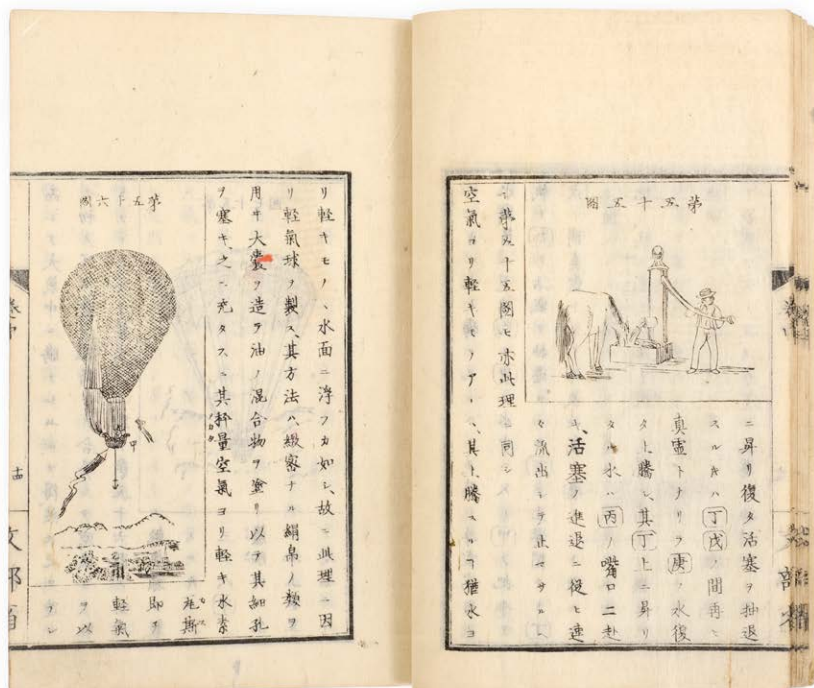 苐五十五圖
ニ昇リ復タ活塞ヲ抽退
スルキハ丁戊ノ間再ヒ
真虚トナリヲ庚ノ水復
タ上騰シ、其丁上ニ昇リ
タル水ハ丙ノ嘴口ニ赴
キ、活塞ノ進退ニ從ヒ連
々流出シテ止マサル
苐五十五圖モ亦此理ニ同シ
空氣ヨリ輕キモノアレハ、其上騰スルヿ猶水ヨ
リ輕キモノヽ水面ニ浮フカ如シ、故ニ此理ニ因
リ輕氣球ヲ製ス、其方法ハ、緻密ナル絹帛ノ類ヲ
用ヰ大囊ヲ造テ油ノ混合物ヲ塗リ以テ其細孔
ヲ塞キ、之ニ充タスニ其秤量空氣ヨリ輕キ水素
瓦斯
即チ
輕氣
ヲ以
苐五十六圖
卷中
文部省